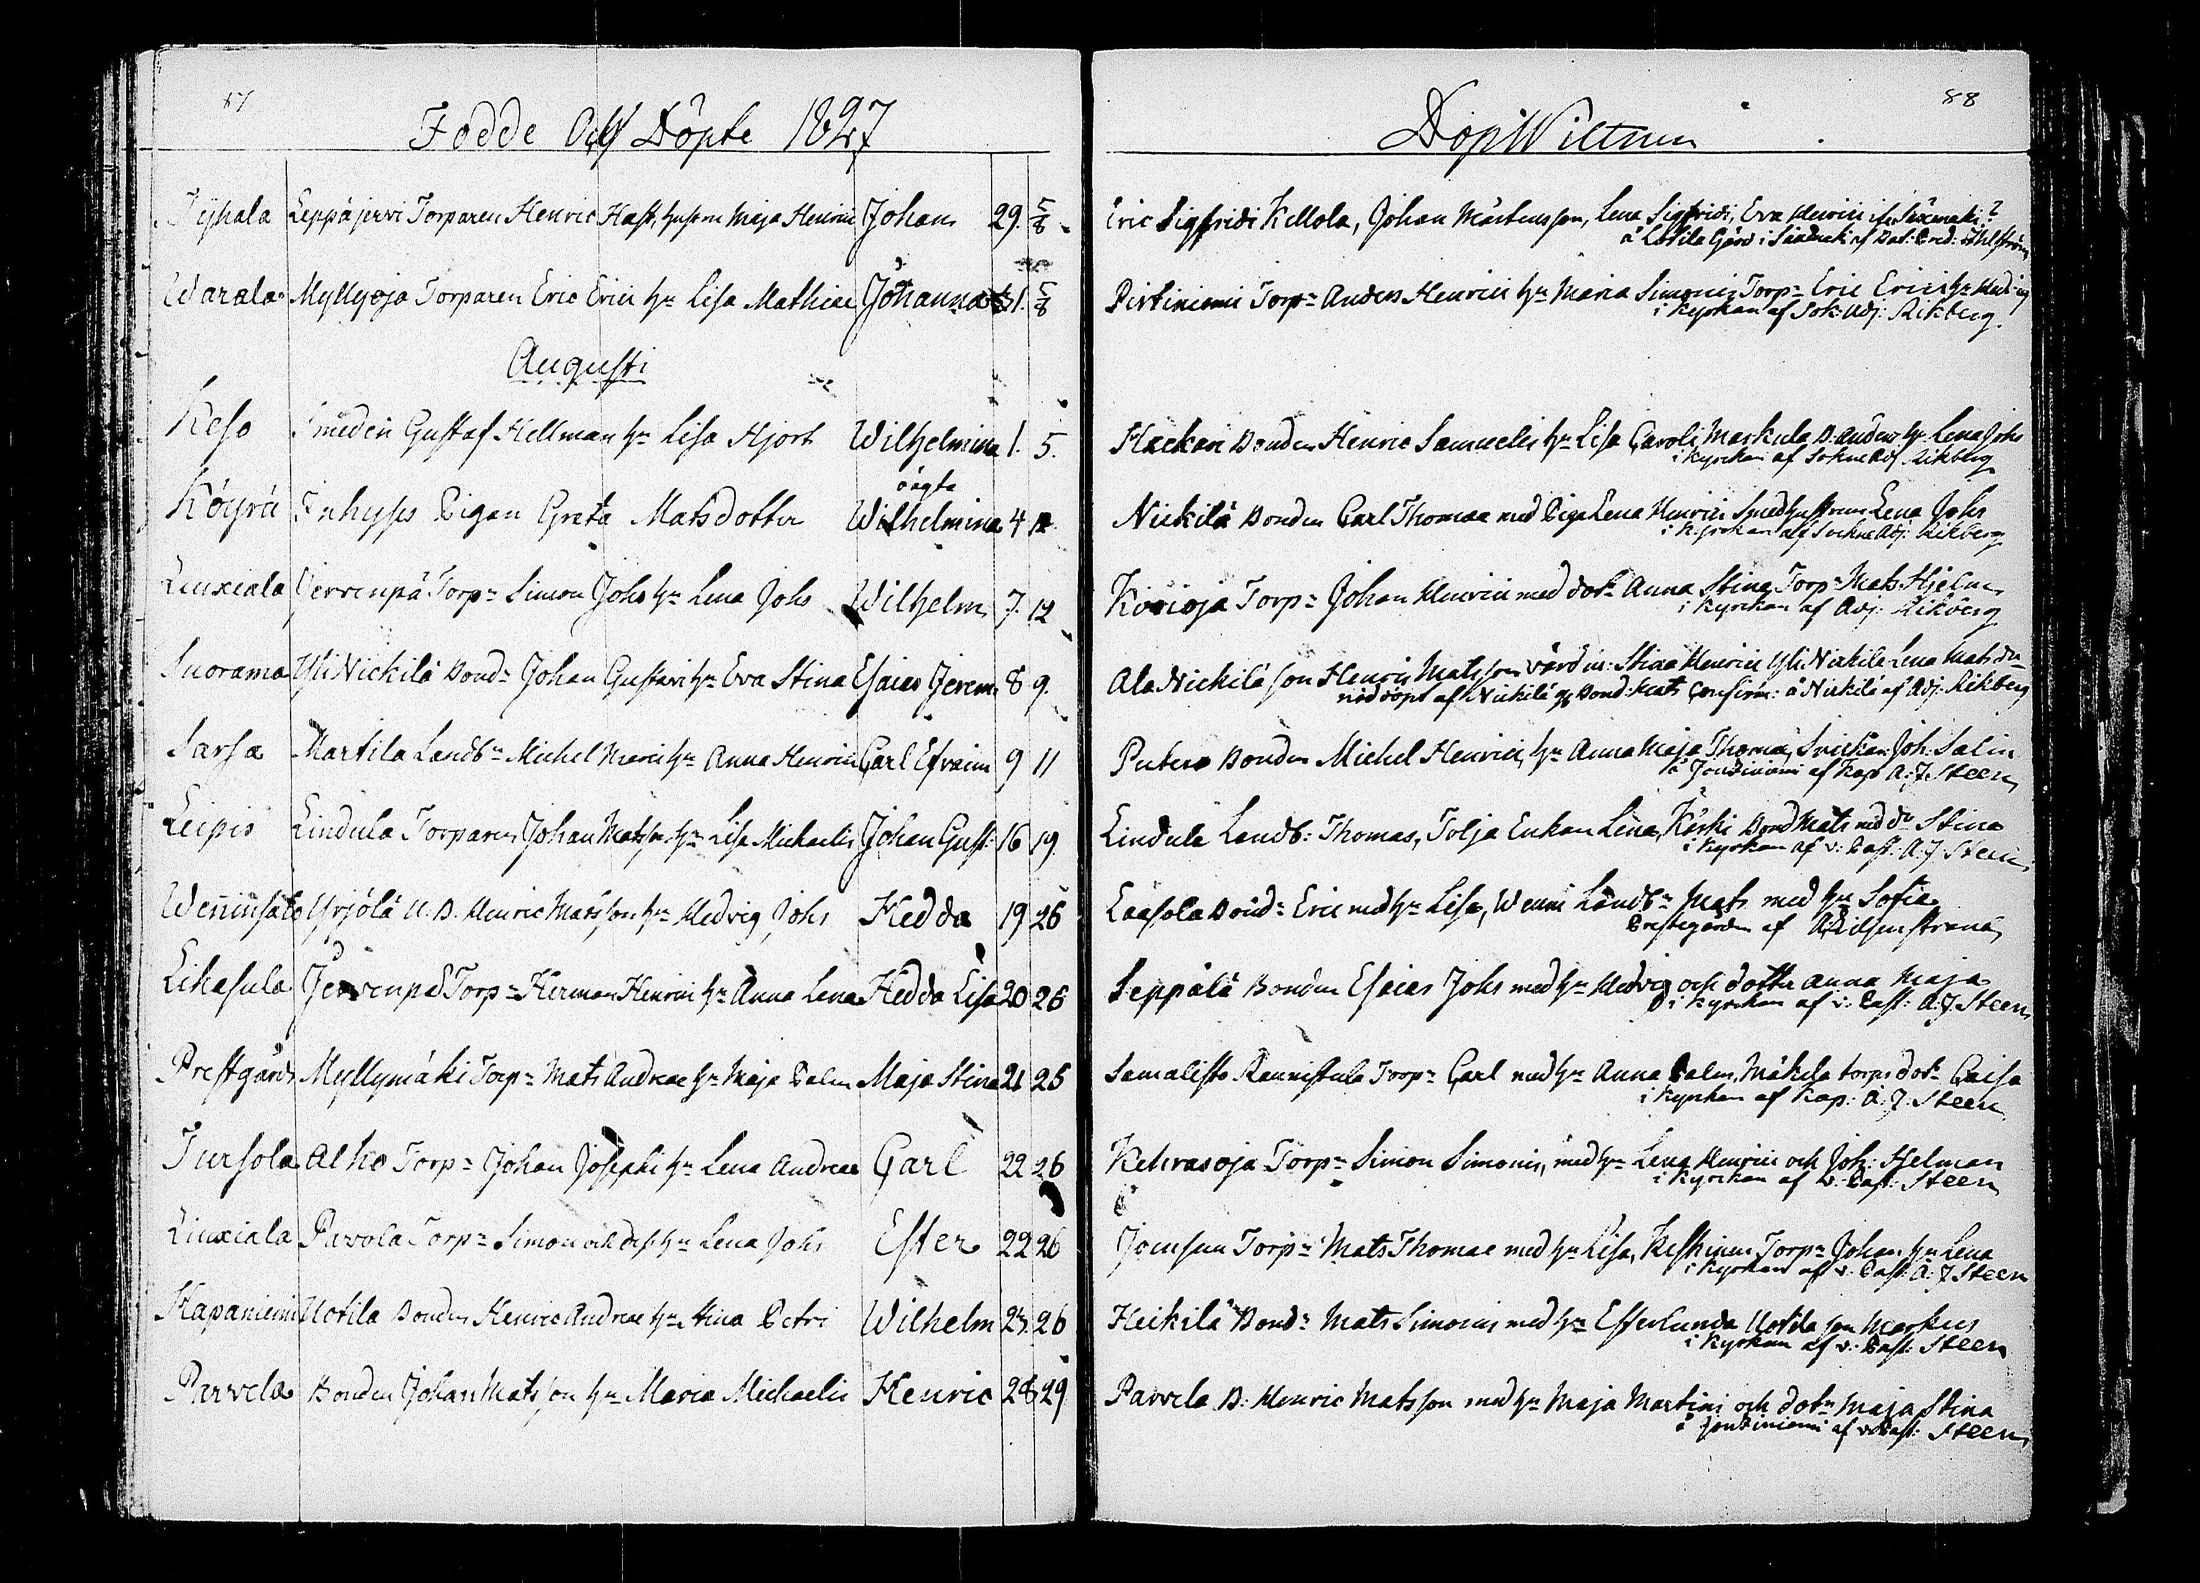 87
Födde Och Döpte 1827
Leppäjervi Torparen Henric Hast, hustrun Maja Henrici Johan 29. 5/8
Warala Myllyoja Torparen Eric Erici hu Lisa Mathiae Johanna 31. 5/8
Augusti
Keso Smeden Gustaf Hellman hu Lisa Hjort Wilhelmina 1. 5.
oägta
Köyrä Inhyses Pigan Greta Matsdotter Wilhelmina 4 12.
Liuxiala Jervenpä Torpn Simon Johs hu Lena Johs Wilhelm 7. 12
Suorama Yli Nickilä Bondn Johan Gustavi hu Eva Stina Esaias Jerem. 8 9.
Sarsa Martila Landbn Michel Henrici hu Anna Henrici Carl Efraim 9 11
Leipis Lindula Torparen Johan Matsson hu Lisa Michaelis Johan Gust: 16 19.
Yrjölä U. B. Henric Matsson hu Hedvig Johs Hedda 19 26
Lihasula Jervenpä Torpn Herman Henrici hu Anna Lena Hedda Lisa 20 26
Prestgård Myllymäki Torpn Mats Andreae hu Maja Palm Maja Stina 21 26
Tursola Alho Torpn Johan Josephi hu Lena Andreae Carl 22 26
Liuxiala Pavola Torpn Simon och dess hu Lena Johs Ester 22 26
Hapaniemi Uotila Bonden Henric Andreae hu Stina Petri Wilhelm 23. 26
Parvela Bonden Johan Matsson hu Maria Michaelis Henric 28 29
88
Dop Wittnen
Eric Sigfridi Kellola, Johan Mårtensson, Lena Sigfridi, Eva Henrici
Pirtiniemi Torpn Anders Henrici hu Maria Simonis Torpn Eric Erici hu
i Kyrkan af Sok: Adj: Rikberg
Haekari Bonden Henric Samuelis hu Lisa Caroli, Markula B. Anders hu Lena Johs
i Kyrkan af Sokne Adj Rikberg
Nickilä Bonden Carl Thomae med Piga Lena Henrici Smedhustrun Lena Johs
i Kyrkan af Sockne Adj: Rikberg
Koivioja Torpn Johan Henrici med dotr Anna Stina, Torpn Mats Hjelm
i Kyrkan af Adj: Rikberg
Ala Nickilä son Henric Matsson värdin: Stina Henrici Yli Nickilä Lena Mats dr
nöddöpt af Nickilä Bond: Mats Confirm: å Nickilä af Adj: Rikberg
Bonden Michel Henrici, hu Anna Maja Thomae, Joh: Salin
af Kap A: J. Steen
Lindula Landb: Thomas, Tolja Enkan Lena, Käski Bond Mats med dr Stina
i Kyrkan af v: Past: A: J Steen
Laasola Bondn Eric med hu Lisa, Wenni Landbn Mats med hu Sofia
Prestegården af
Seppälä Bonden Esaias Johs med hu Hedvig och dotter Anna Maja
i Kyrkan af v: Past: A: J. Steen
Samalisto Rannistula Torpn Carl med hu Anna Palm, Mäkelä torps dotr Caisa
i Kyrkan af Kap: A: J: Steen
Kehrasoja Torpn Simon Simonis, med hu Lena Henrici och Joh: Helman
i Kyrkan af v: Past: Steen
Torpn Mats Thomae med hu Lisa, Keskinen Torpn Johan hu Lena
i Kyrkan af v: Past: A: J Steen
Heikilä Bondn Mats Simonis med hu Uotila son Markus
i Kyrkan af v: Past: Steen
Parvela B: Henric Matsson med hu Maja Martini och dotr Maja Stina
af v Past: Steen